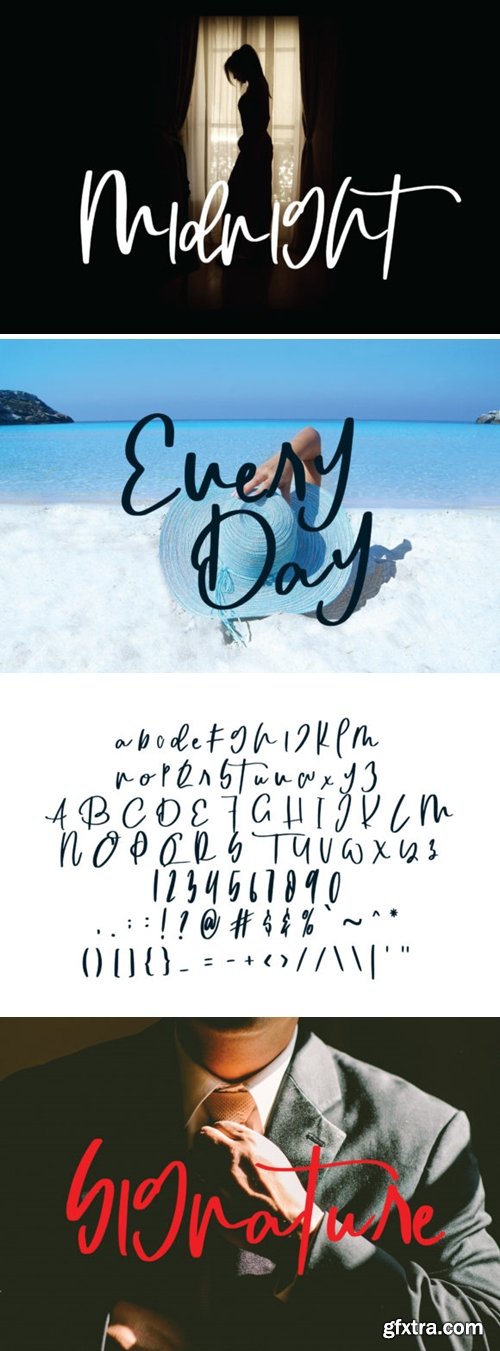 Midnight
Every
Day
a b c d e f g h i j k l m
n o p q r s t u v w x y z
A B C D E F G H I J K L M
N O P Q R S T U V W X Y Z
1 2 3 4 5 6 7 8 9 0
, . ; : ! ? @ # $ & % ` ~ ^ *
( ) [ ] { } _ = - + < > / / \ \ | ' "
Signature
gfxtra.com